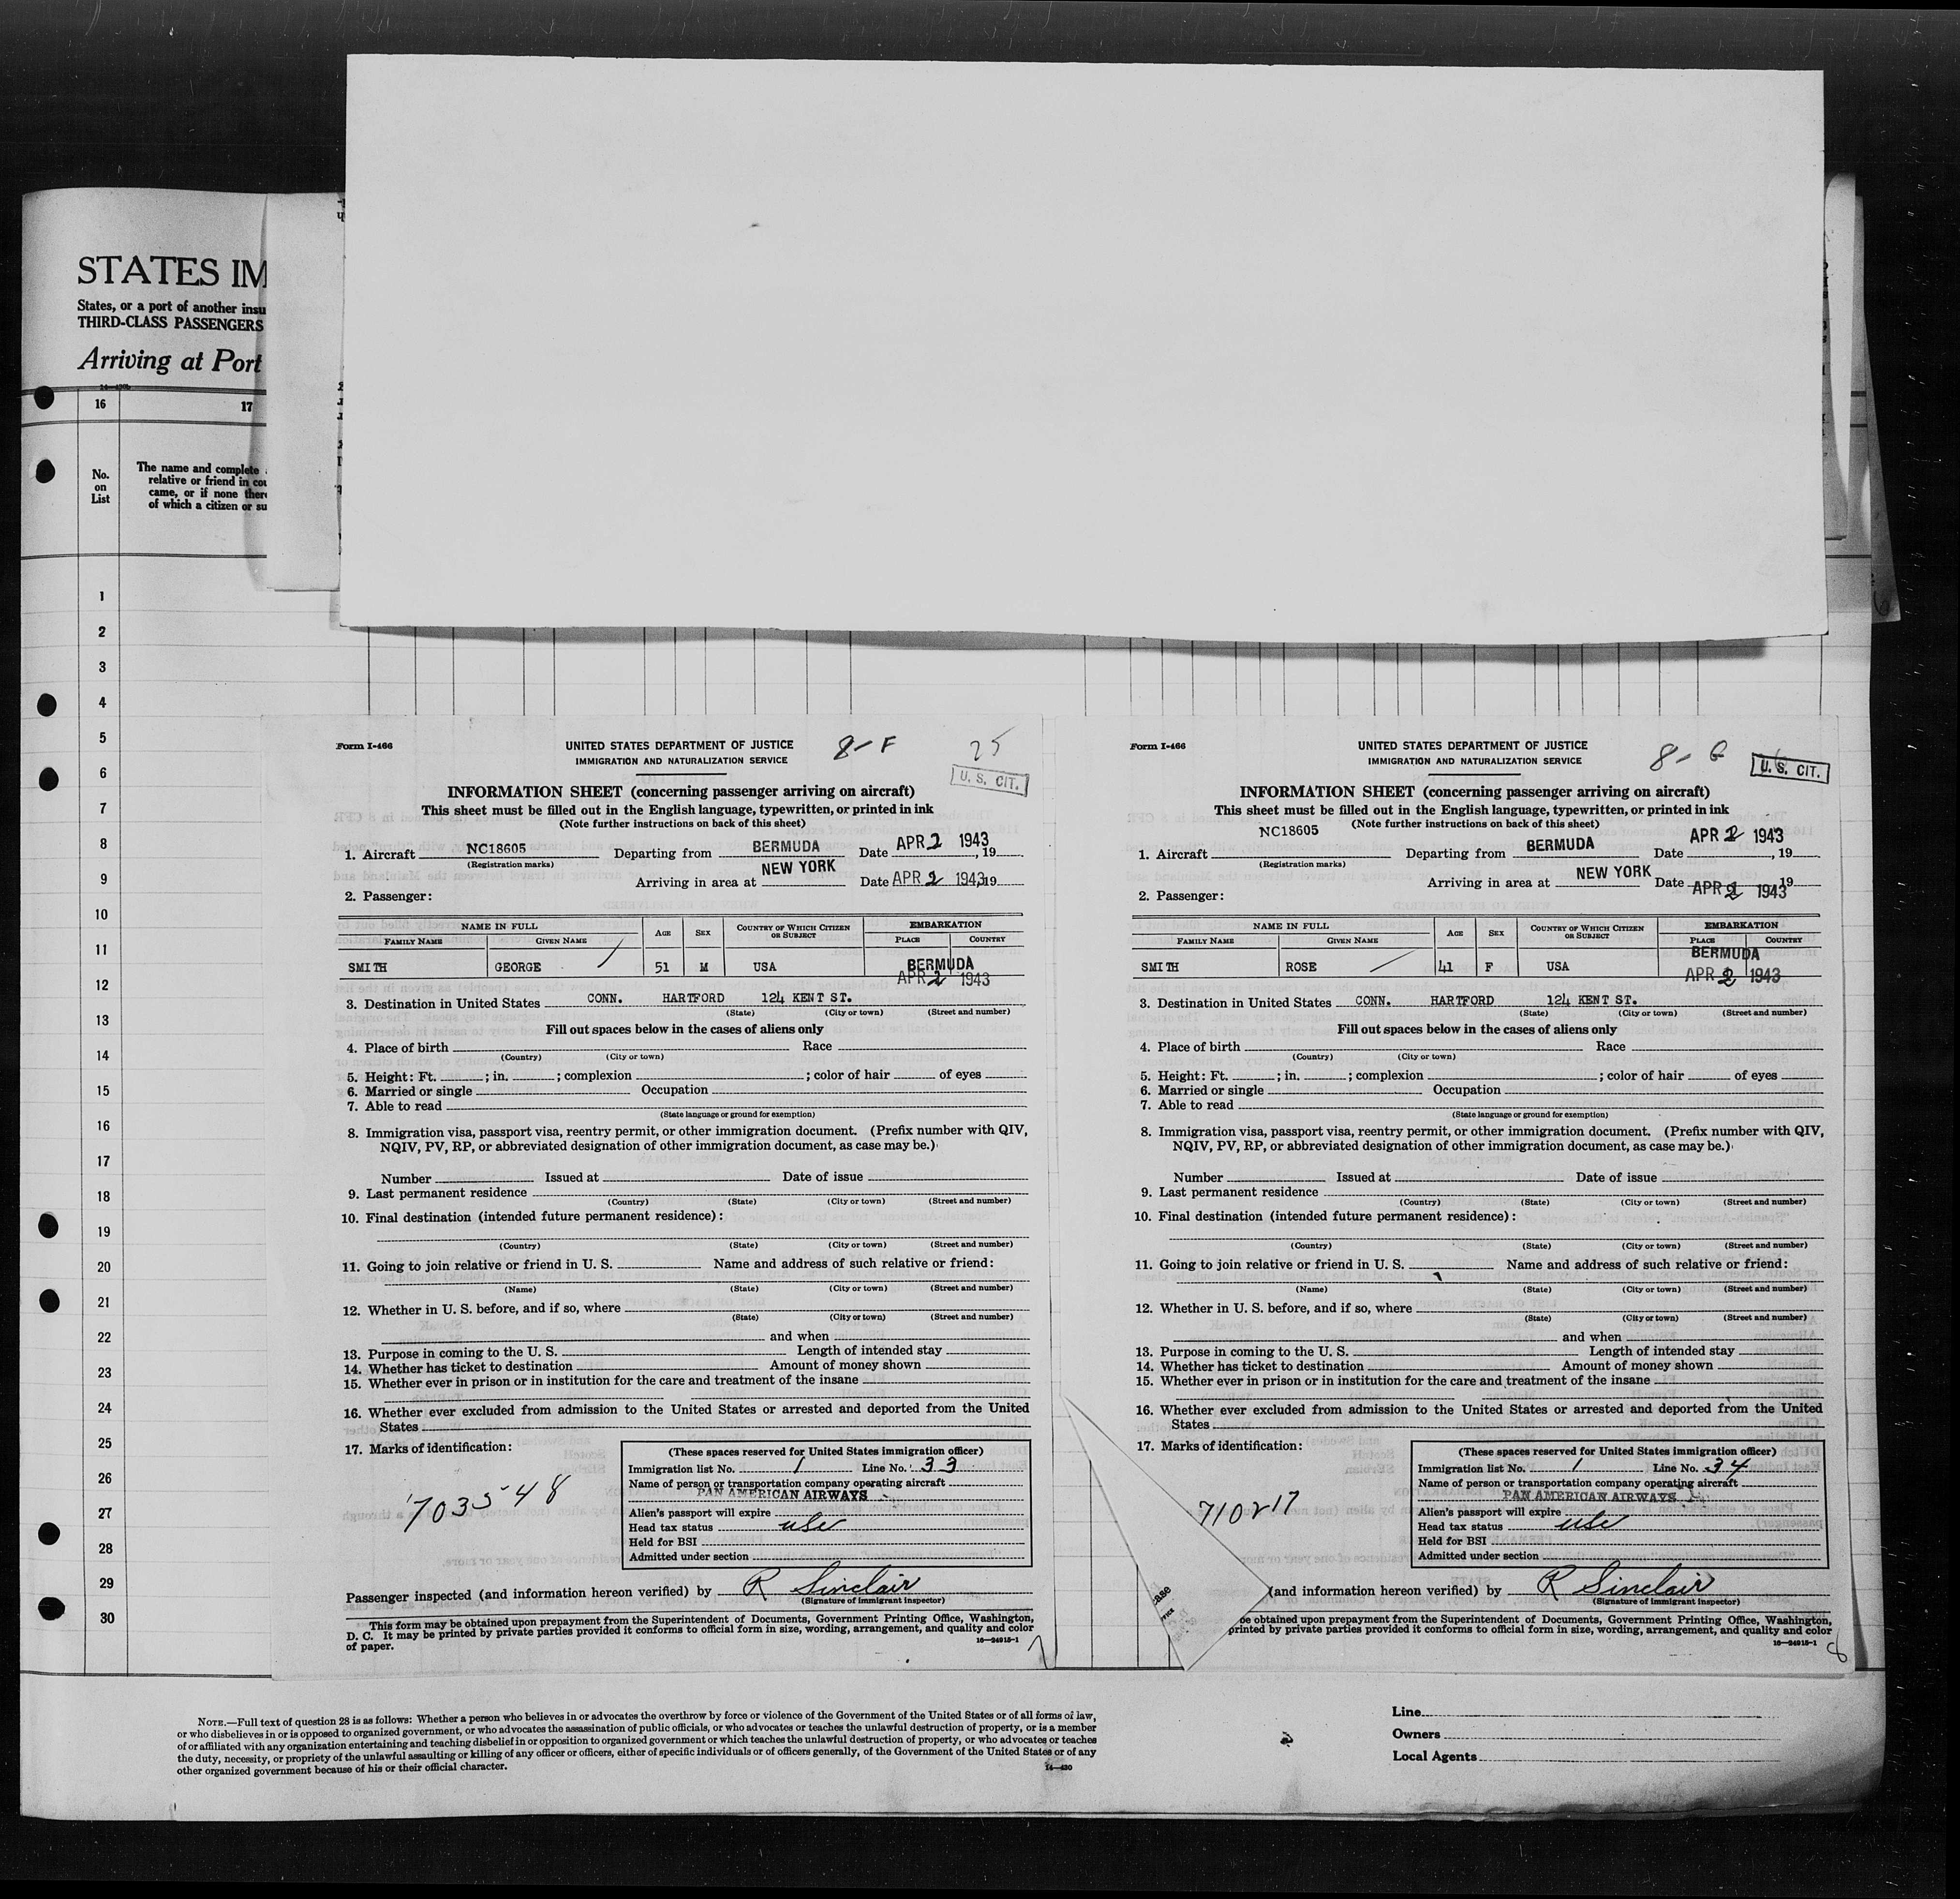 STATES IM
States, or a port of another insu
THIRD-CLASS PASSENGERS
Arriving at Port
16 17
No. on List
The name and complete
relative or friend in cou
came, or if none there
of which a citizen or su
1
2
3
4
5
6
7
8
9
10
11
12
13
14
15
16
17
18
19
20
21
22
23
24
25
26
27
28
29
30
Form I-466
UNITED STATES DEPARTMENT OF JUSTICE 8-F 25
IMMIGRATION AND NATURALIZATION SERVICE
U. S. CIT.
INFORMATION SHEET (concerning passenger arriving on aircraft)
This sheet must be filled out in the English language, typewritten, or printed in ink
(Note further instructions on back of this sheet)
1. Aircraft NC18605 Departing from BERMUDA Date APR 2 1943, 19
(Registration marks)
Arriving in area at NEW YORK Date APR 2 1943, 19
2. Passenger:
NAME IN FULL AGE SEX COUNTRY OF WHICH CITIZEN OR SUBJECT EMBARKATION
FAMILY NAME GIVEN NAME PLACE COUNTRY
SMITH GEORGE 51 M USA BERMUDA
APR 2 1943
3. Destination in United States CONN. HARTFORD 124 KENT ST.
(State) (City or town) (Street and number)
Fill out spaces below in the cases of aliens only
4. Place of birth Race
(Country) (City or town)
5. Height: Ft. ; in. ; complexion ; color of hair of eyes
6. Married or single Occupation
7. Able to read
(State language or ground for exemption)
8. Immigration visa, passport visa, reentry permit, or other immigration document. (Prefix number with QIV,
NQIV, PV, RP, or abbreviated designation of other immigration document, as case may be.)
Number Issued at Date of issue
9. Last permanent residence
(Country) (State) (City or town) (Street and number)
10. Final destination (intended future permanent residence):
(Country) (State) (City or town) (Street and number)
11. Going to join relative or friend in U. S. Name and address of such relative or friend:
(Name) (State) (City or town) (Street and number)
12. Whether in U. S. before, and if so, where
(State) (City or town) (Street and number)
and when
13. Purpose in coming to the U. S. Length of intended stay
14. Whether has ticket to destination Amount of money shown
15. Whether ever in prison or in institution for the care and treatment of the insane
16. Whether ever excluded from admission to the United States or arrested and deported from the United
States
17. Marks of identification:
703548
(These spaces reserved for United States immigration officer)
Immigration list No. 1 Line No. 33
Name of person or transportation company operating aircraft
PAN AMERICAN AIRWAYS
Alien's passport will expire
Head tax status usc
Held for BSI
Admitted under section
Passenger inspected (and information hereon verified) by R Sinclair
(Signature of immigrant inspector)
This form may be obtained upon prepayment from the Superintendent of Documents, Government Printing Office, Washington,
D. C. It may be printed by private parties provided it conforms to official form in size, wording, arrangement, and quality and color
of paper. 16—24915-1
7
Form I-466
UNITED STATES DEPARTMENT OF JUSTICE 8-G
IMMIGRATION AND NATURALIZATION SERVICE
U. S. CIT.
INFORMATION SHEET (concerning passenger arriving on aircraft)
This sheet must be filled out in the English language, typewritten, or printed in ink
(Note further instructions on back of this sheet)
1. Aircraft NC18605 Departing from BERMUDA Date APR 2 1943, 19
(Registration marks)
Arriving in area at NEW YORK Date APR 2 1943 19
2. Passenger:
NAME IN FULL AGE SEX COUNTRY OF WHICH CITIZEN OR SUBJECT EMBARKATION
FAMILY NAME GIVEN NAME PLACE COUNTRY
SMITH ROSE 41 F USA BERMUDA
APR 2 1943
3. Destination in United States CONN. HARTFORD 124 KENT ST.
(State) (City or town) (Street and number)
Fill out spaces below in the cases of aliens only
4. Place of birth Race
(Country) (City or town)
5. Height: Ft. ; in. ; complexion ; color of hair of eyes
6. Married or single Occupation
7. Able to read
(State language or ground for exemption)
8. Immigration visa, passport visa, reentry permit, or other immigration document. (Prefix number with QIV,
NQIV, PV, RP, or abbreviated designation of other immigration document, as case may be.)
Number Issued at Date of issue
9. Last permanent residence
(Country) (State) (City or town) (Street and number)
10. Final destination (intended future permanent residence):
(Country) (State) (City or town) (Street and number)
11. Going to join relative or friend in U. S. Name and address of such relative or friend:
(Name) (State) (City or town) (Street and number)
12. Whether in U. S. before, and if so, where
(State) (City or town) (Street and number)
and when
13. Purpose in coming to the U. S. Length of intended stay
14. Whether has ticket to destination Amount of money shown
15. Whether ever in prison or in institution for the care and treatment of the insane
16. Whether ever excluded from admission to the United States or arrested and deported from the United
States
17. Marks of identification:
710217
(These spaces reserved for United States immigration officer)
Immigration list No. 1 Line No. 34
Name of person or transportation company operating aircraft
PAN AMERICAN AIRWAYS
Alien's passport will expire
Head tax status usc
Held for BSI
Admitted under section
(and information hereon verified) by R Sinclair
(Signature of immigrant inspector)
be obtained upon prepayment from the Superintendent of Documents, Government Printing Office, Washington,
printed by private parties provided it conforms to official form in size, wording, arrangement, and quality and color
16—24915-1
8
NOTE.—Full text of question 28 is as follows: Whether a person who believes in or advocates the overthrow by force or violence of the Government of the United States or of all forms of law,
or who disbelieves in or is opposed to organized government, or who advocates the assassination of public officials, or who advocates or teaches the unlawful destruction of property, or is a member
of or affiliated with any organization entertaining and teaching disbelief in or opposition to organized government or which teaches the unlawful destruction of property, or who advocates or teaches
the duty, necessity, or propriety of the unlawful assaulting or killing of any officer or officers, either of specific individuals or of officers generally, of the Government of the United States or of any
other organized government because of his or their official character. 14—430
Line
Owners
Local Agents